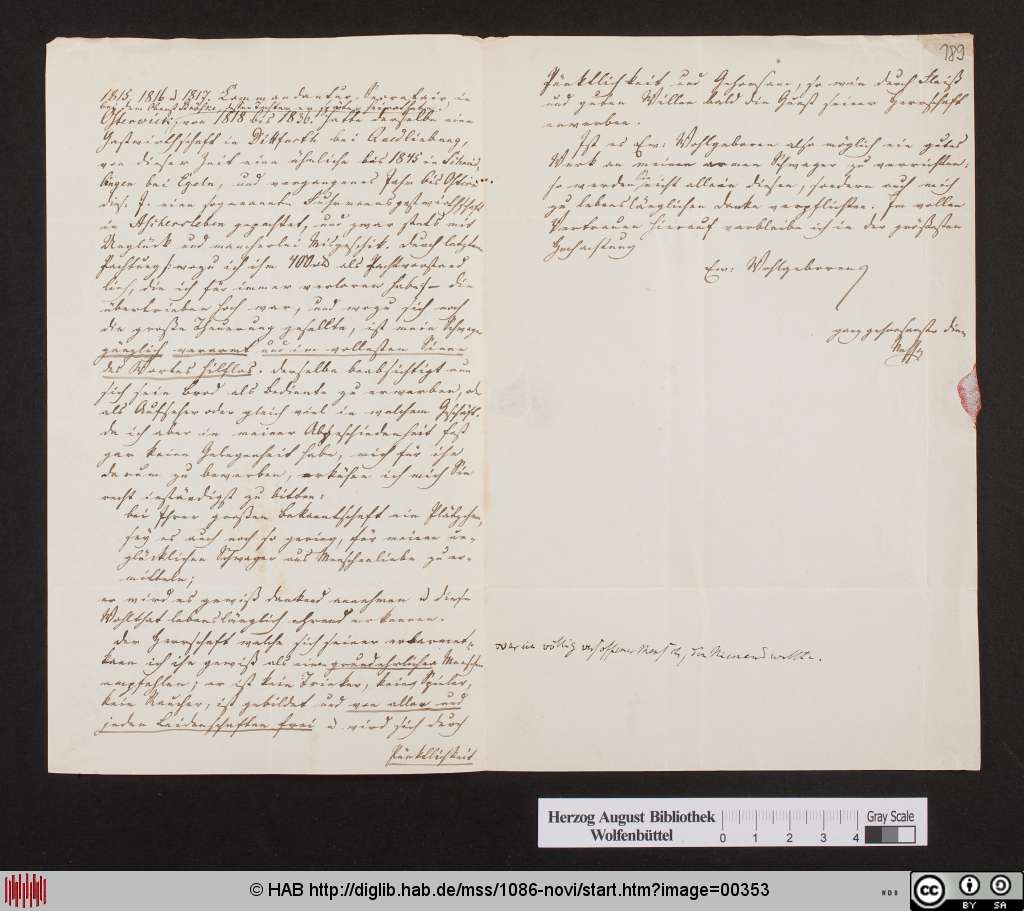 1815, 1816 & 1817. Commandantur-Secretair, in
Osterwick, von 1818 bis 1836. hatte derselbe eine
Gastwirthschaft in Dittfurth bei Quedlinburg,
von dieser Zeit eine ähnliche bis 1845 in
bei Egeln, und vergangenes Jahr bis Ostern
dies. J. eine sogenannte Fuhrmannsgastwirthschaft
in Aschersleben gepachtet, und zwar stets mit
Unglück und mancherlei Misgeschik. Durch letztere
Pachtung, wozu ich ihm 400 als Pachtvorstand
lieh, die ich für immer verloren habe, die
übertrieben hoch war, und wozu sich noch
die große Theuerung gesellte, ist mein Schwager
gänzlich verarmt und im vollesten Sinne
des Wortes hilflos. Derselbe beabsichtigt nun
sich sein Brod als Bediente zu erwerben, od.
als Aufseher oder gleich viel in welchem Geschäft.
Da ich aber in meiner Abgeschiedenheit fast
gar keine Gelegenheit habe, mich für ihn
darum zu bewerben, erkühne ich mich Sie
recht inständigst zu bitten:
bei Ihrer großen Bekanntschaft ein Plätzchen,
sey es auch noch so gering, für meinen un-
glücklichen Schwager aus Menschenliebe zu er-
mitteln;
er wird es gewiß dankend annehmen & diese
Wohlthat lebenslänglich ehrend erkennen.
Der Herrschaft welche sich seiner erbarmet,
kann ich ihn gewiß als einen grundehrlichen Menschen
empfehlen; er ist kein Trinker, kein Spieler,
kein Raucher, ist gebildet und von aller und
jeden Leidenschaften frei & wird sich durch
Pünktlichkeit
189
Pünktlichkeit und Gehorsam, so wie durch Fleiß
und guten Willen bald die Gunst seiner Herrschaft
erwerben.
Ist es Ew: Wohlgeboren also möglich ein gutes
Werk an meinen armen Schwager zu verrichten;
so werden Sie nicht allein diesen, sondern auch mich
zu lebenslänglichen Danke verpflichten. Im vollen
Vertrauen hierauf verbleibe ich in der größesten
Hochachtung
Ew: Wohlgeboren
ganz gehorsamster Diener
völlig
Herzog August Bibliothek
Wolfenbüttel
0 1 2 3 4
Gray Scale
© HAB http://diglib.hab.de/mss/1086-novi/start.htm?image=00353
WDB
cc
BY SA